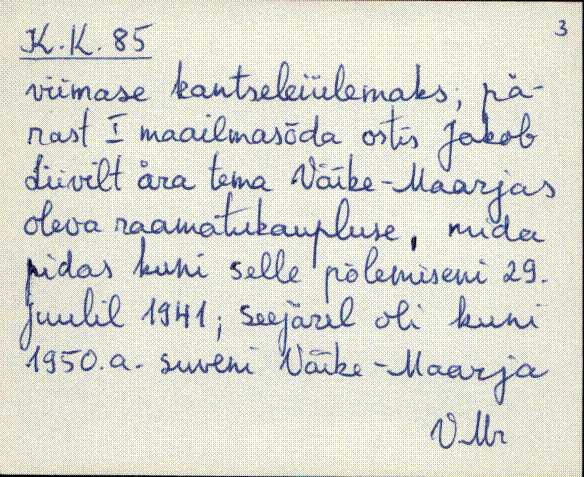 K.K. 85
3
viimase kantseleiülemaks; pä-
rast I maailmasõda ostis Jakob
Liivilt ära tema Väike-Maarjas
oleva raamatukaupluse, mida
pidas kuni selle põlemiseni 29.
juulil 1941; seejärel oli kuni
1950.a. suveni Väike-Maarja
VMr